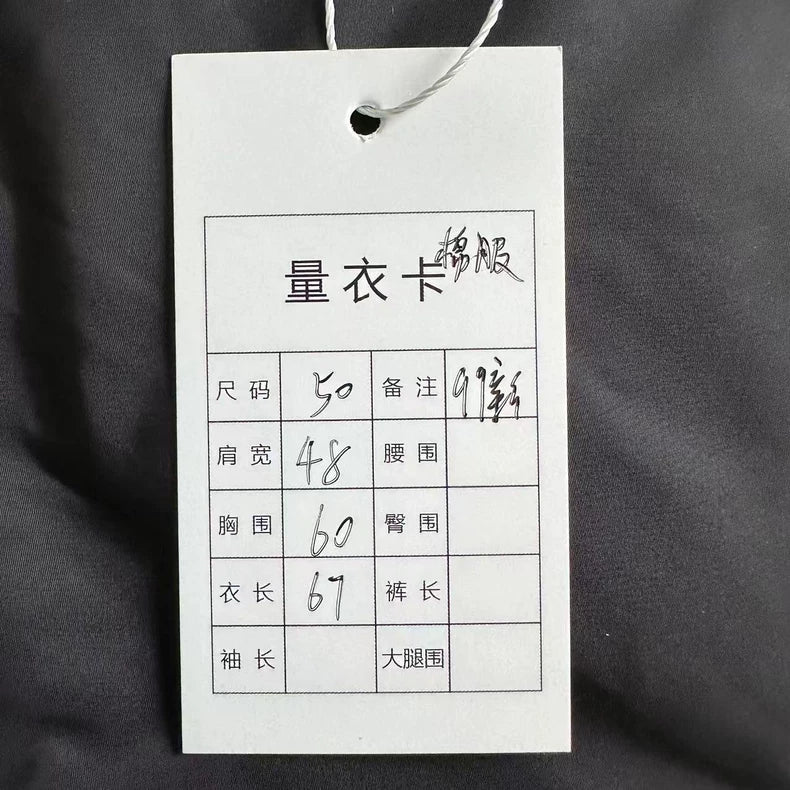 量衣卡 棉服
尺码 50 备注 99新
肩宽 48 腰围
胸围 60 臀围
衣长 67 裤长
袖长 大腿围